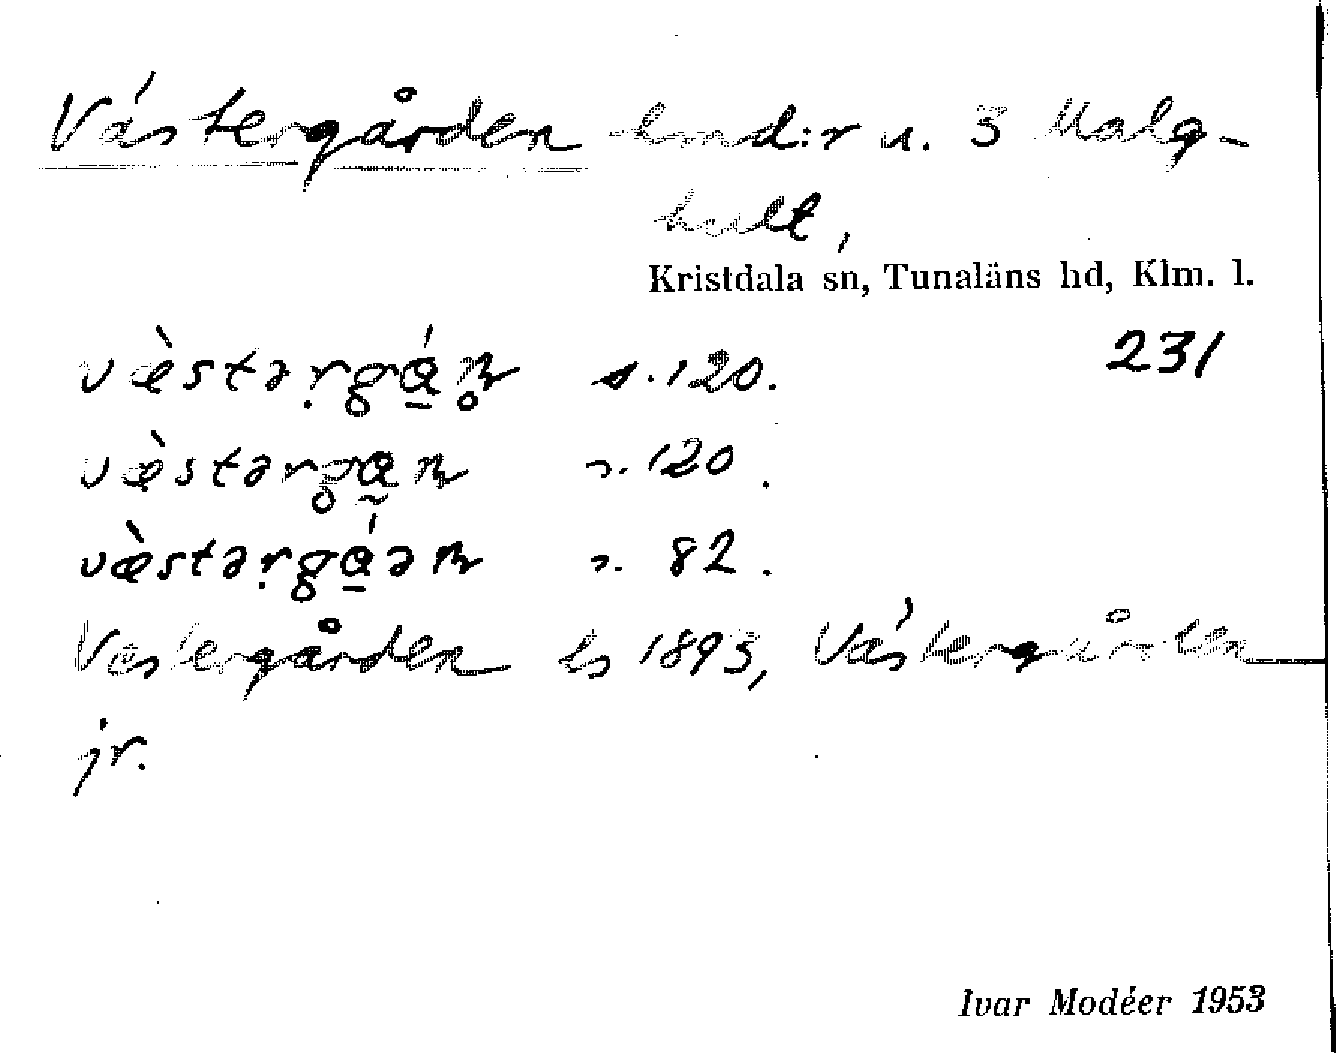 Västergården hmd:r u. 3 Malg-
hult,
Kristdala sn, Tunaläns hd, Klm. l.
231
væ̀stəṛgá̱n̥ s.120.
væ̀stərgan s.120.
væ̀stəṛgá̱ən s. 82.
Västergården ls 1893, Västergården
jr.
Ivar Modéer 1953